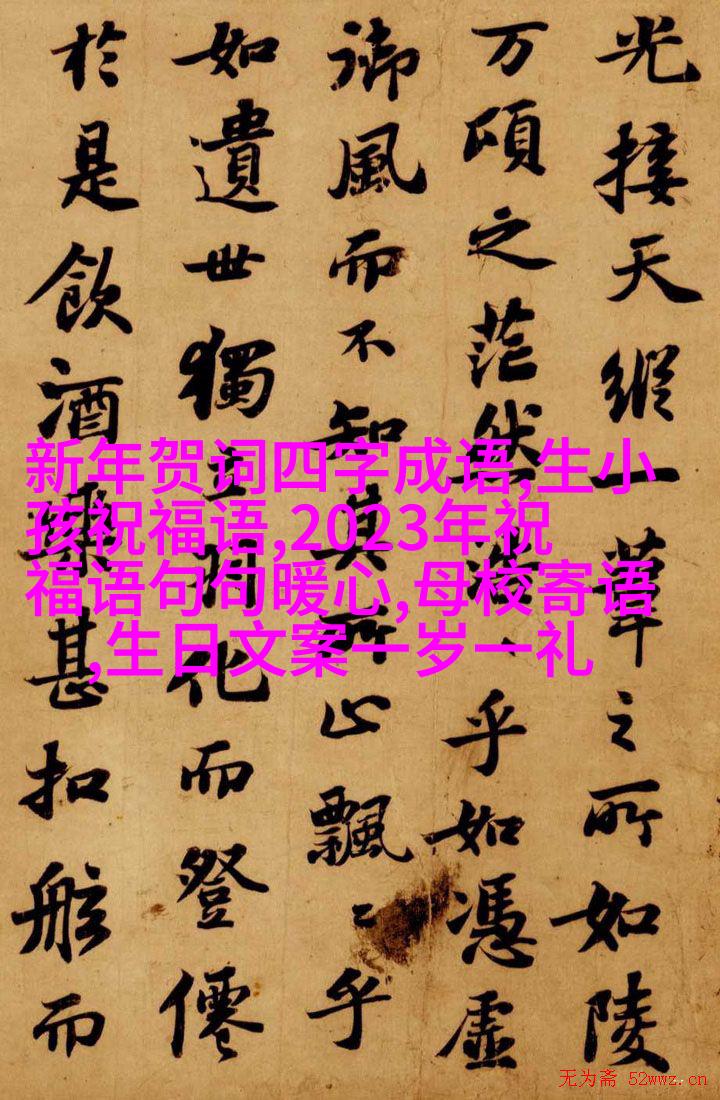 光接天縱一葦之所如陵
万頃之茫然浩〻乎如憑虛
御風而不知其所止飄〻乎
如遺世獨立羽化而登僊
於是飲酒樂甚扣舷而
新年贺词四字成语,生小
孩祝福语,2023年祝
福语句句暖心,母校寄语
,生日文案一岁一礼
无为斋 52wwz.cn